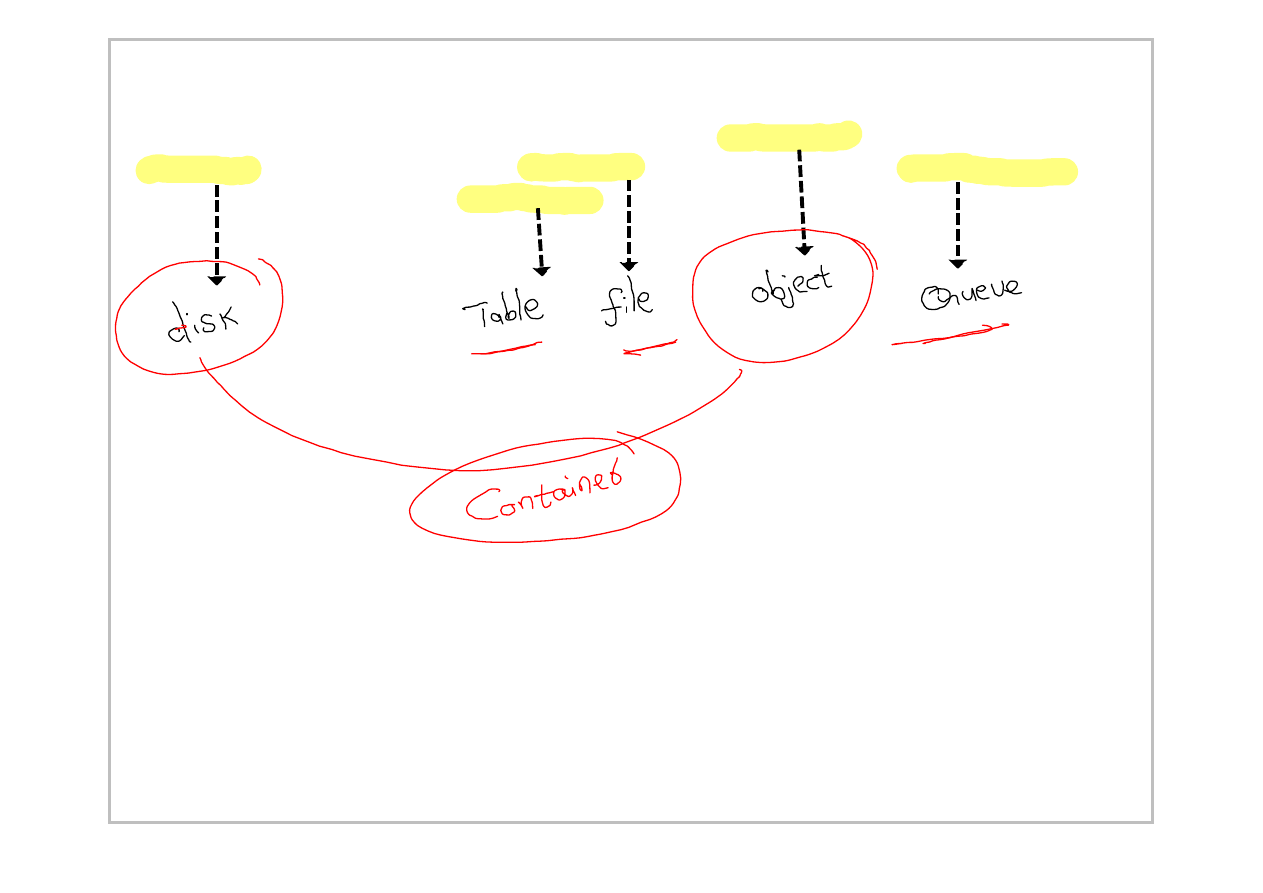 disk Table file object Queue
Container